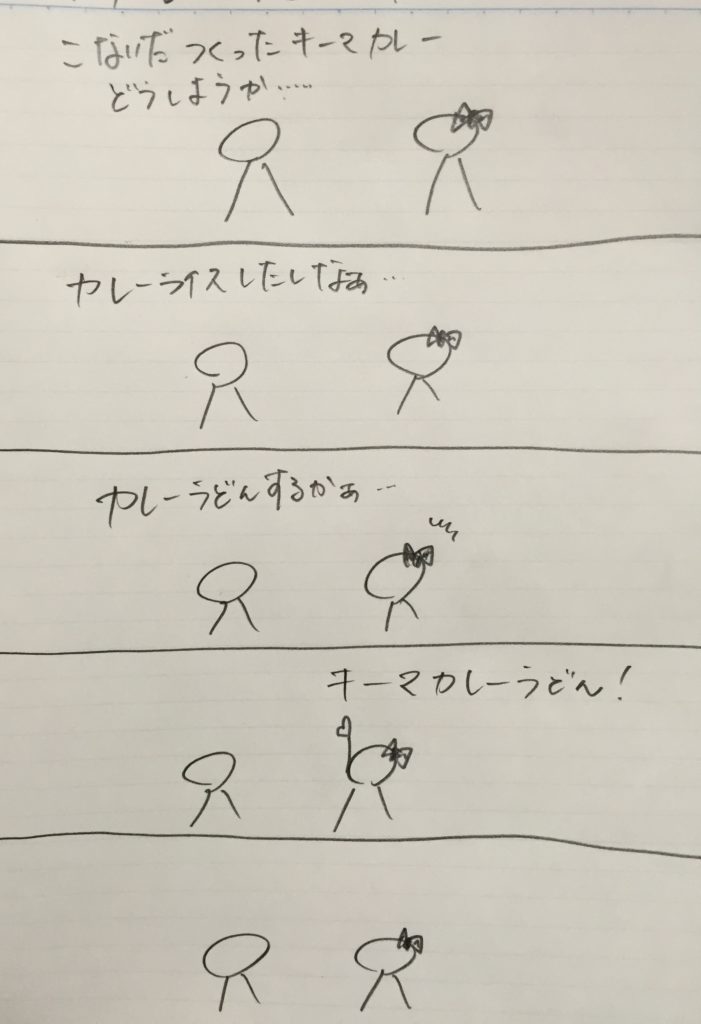 こないだ つくった キーマカレー
どうしようか……
カレーライスしたしなぁ…
カレーうどんするかぁ…
キーマカレーうどん!